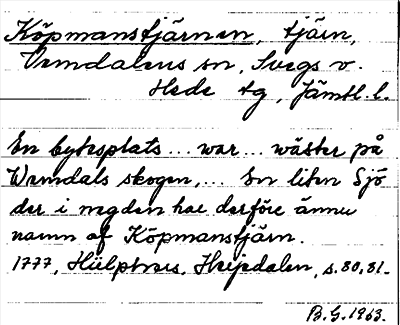 Köpmanstjärnen, tjärn,
Vemdalens sn, Svegs v.
Hede tg, Jämtl. l.
En bytesplats... war... wäster på
Wemdals skogen,... En liten Sjö
der i negden har derföre ännu
namn af Köpmanstjärn.
1777, Hülphers, Herjedalen, s. 80, 81.
B.G. 1963.